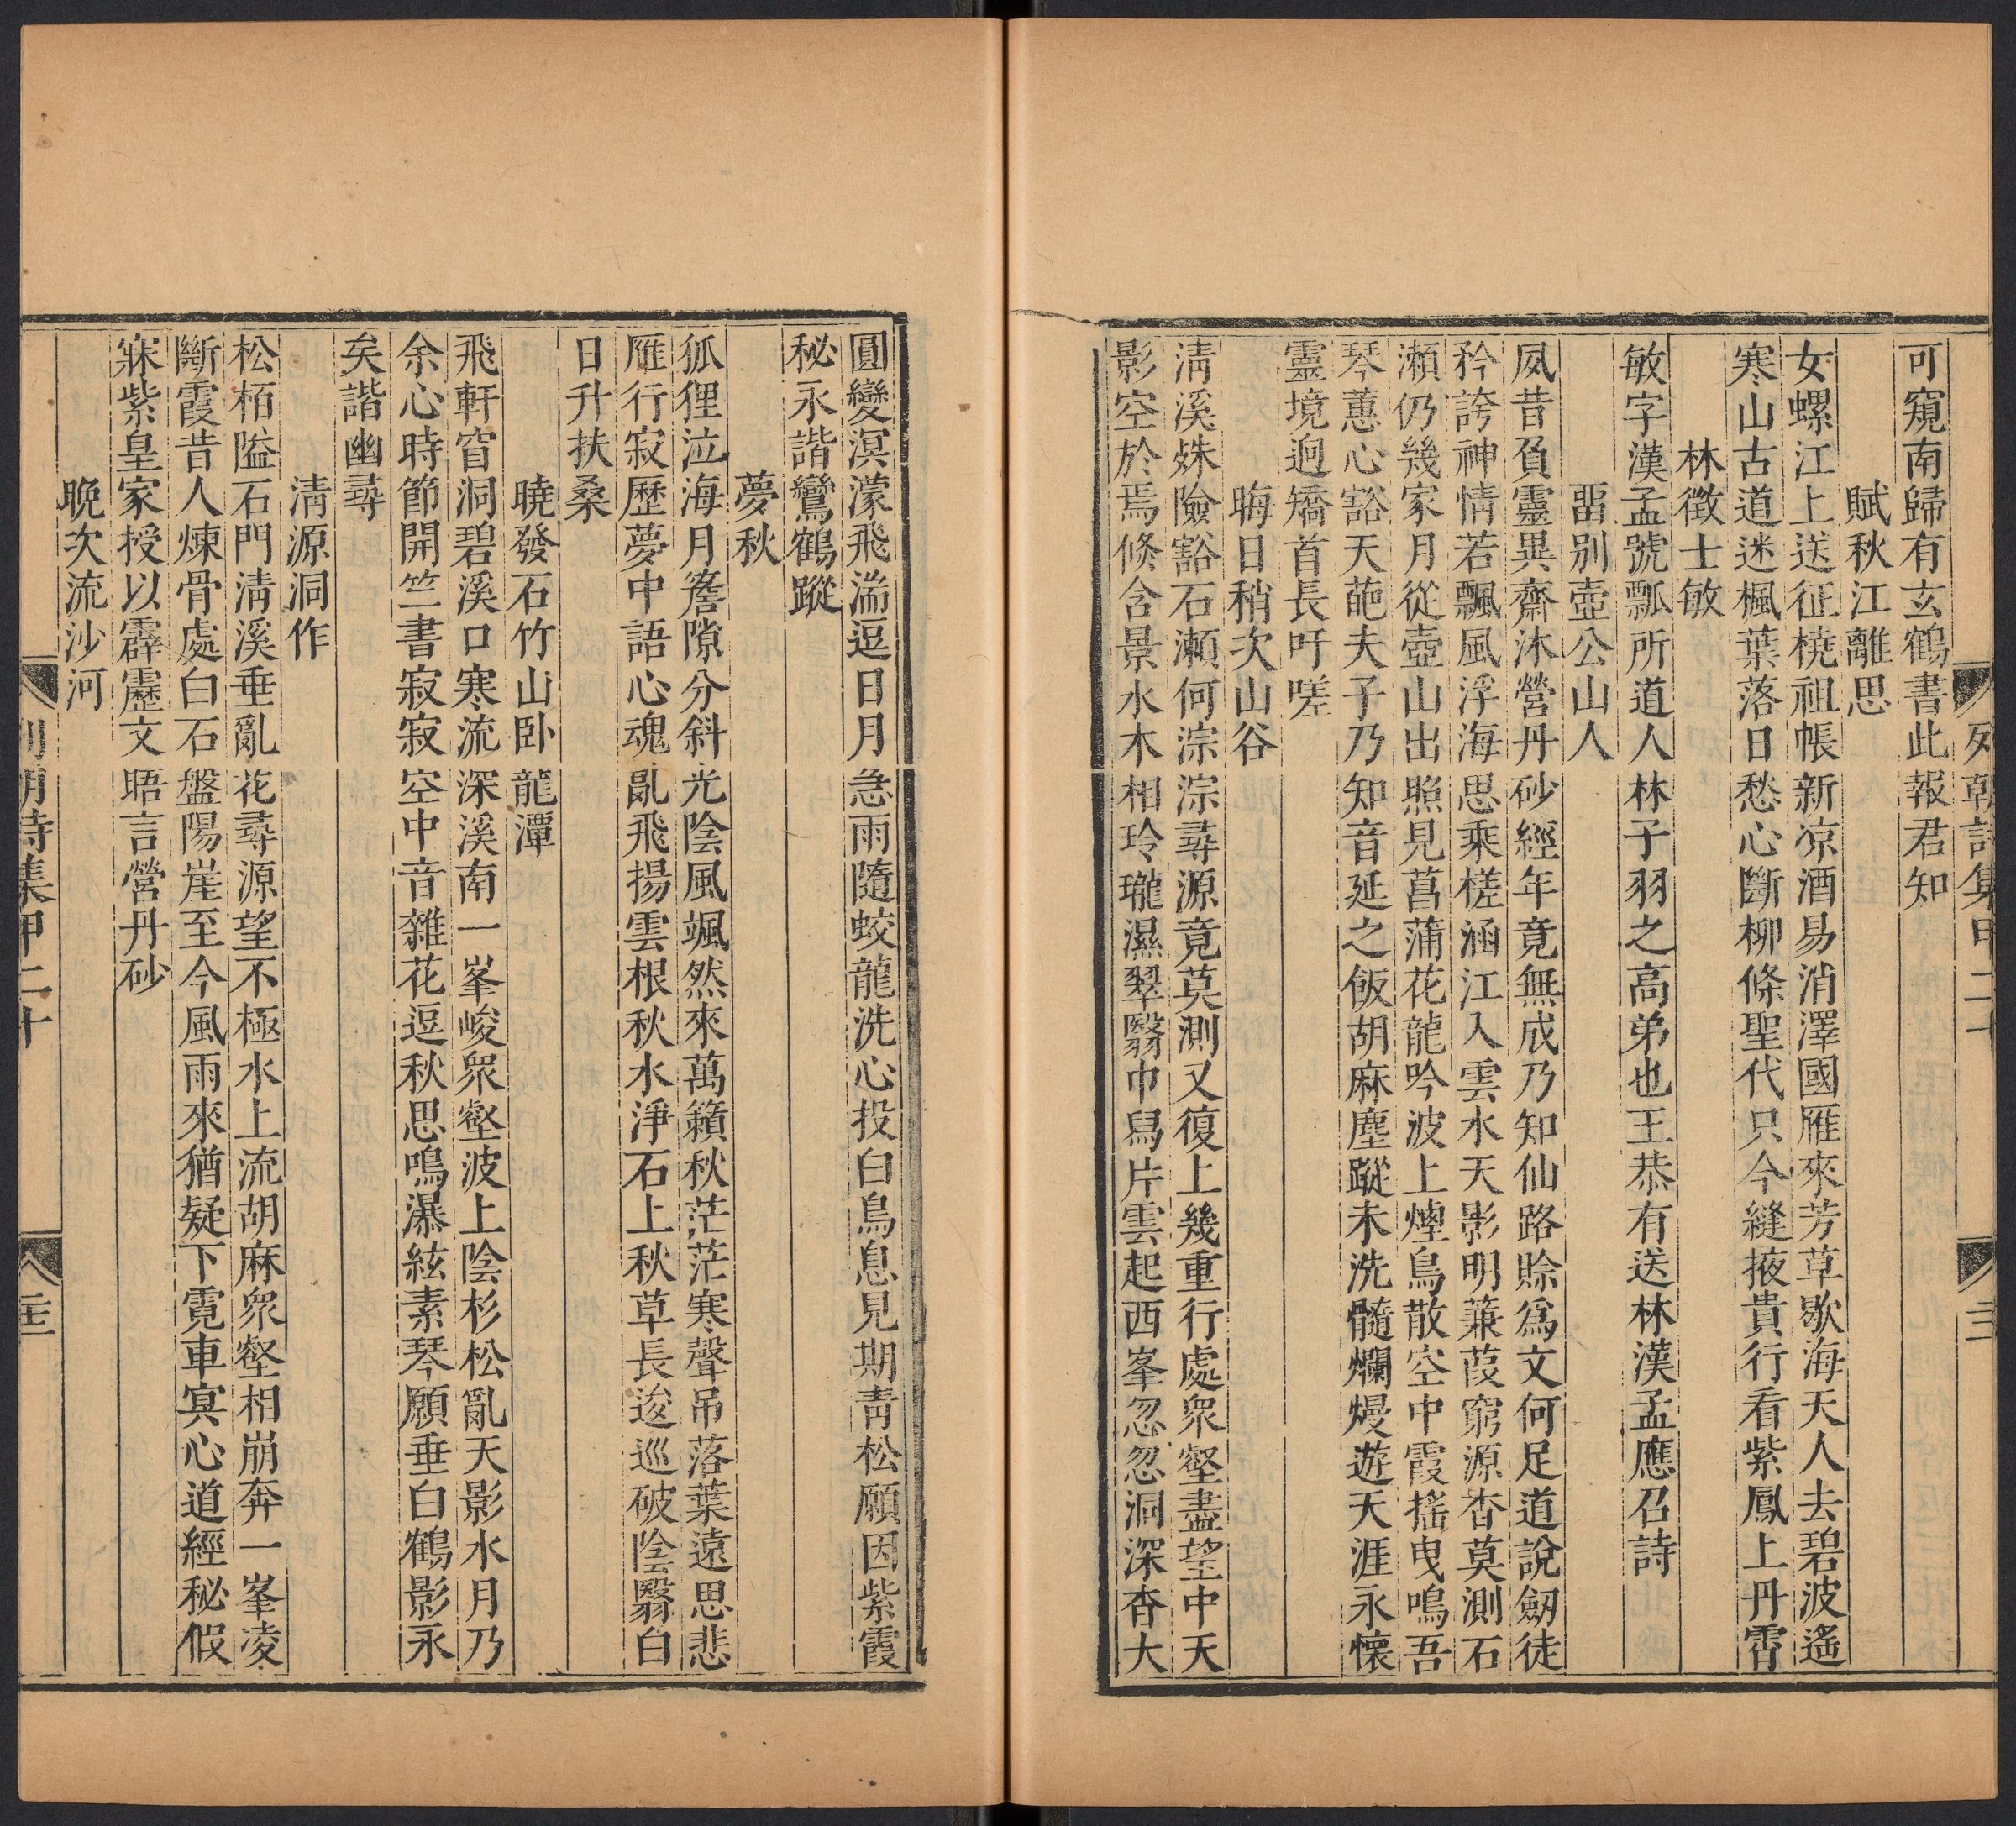 列朝詩集甲二十
二
可窺南歸有玄鶴書此報君知
賦秋江離思
女螺江上送征橈祖帳新凉酒易消澤國雁來芳草歇海天人去碧波遙
寒山古道迷楓葉落日愁心斷柳條聖代只今縫掖貴行看紫鳳上丹霄
林徵士敏
敏字漢孟號瓢所道人林子羽之高弟也王恭有送林漢孟應召詩
畱别壺公山人
夙昔負靈異齋沐營丹砂經年竟無成乃知仙路賒爲文何足道說劒徒
矜誇神情若飄風浮海思乘槎涵江入雲水天影明蒹葭窮源杳莫測石
瀬仍幾家月從壺山出照見菖蒲花龍吟波上煙鳥散空中霞搖曳鳴吾
琴蕙心豁天葩夫子乃知音延之飯胡麻塵蹤未洗髓爛熳遊天涯永懷
靈境迥矯首長吁嗟
晦日稍次山谷
淸溪殊險豁石瀬何淙淙尋源竟莫測又復上幾重行處衆壑盡望中天
影空於焉倏含景水木相玲瓏濕翠翳巾舄片雲起西峯忽忽洞深杳大
圓變溟濛飛湍逗日月急雨隨蛟龍洗心投白鳥息見期靑松願因紫霞
秘永諧鸞鶴蹤
夢秋
狐狸泣海月簷隙分斜光陰風颯然來萬籟秋茫茫寒聲吊落葉遠思悲
雁行寂歷夢中語心魂亂飛揚雲根秋水淨石上秋草長逡巡破陰翳白
日升扶桑
曉發石竹山卧龍潭
飛軒窅洞碧溪口寒流深溪南一峯峻衆壑波上陰杉松亂天影水月乃
余心時節開竺書寂寂空中音雜花逗秋思鳴瀑絃素琴願垂白鶴影永
矣諧幽尋
淸源洞作
松栢隘石門淸溪垂亂花尋源望不極水上流胡麻衆壑相崩奔一峯凌
斷霞昔人煉骨處白石盤陽崖至今風雨來猶疑下霓車冥心道經秘假
寐紫皇家授以霹靂文晤言營丹砂
晚次流沙河
列朝詩集甲二十